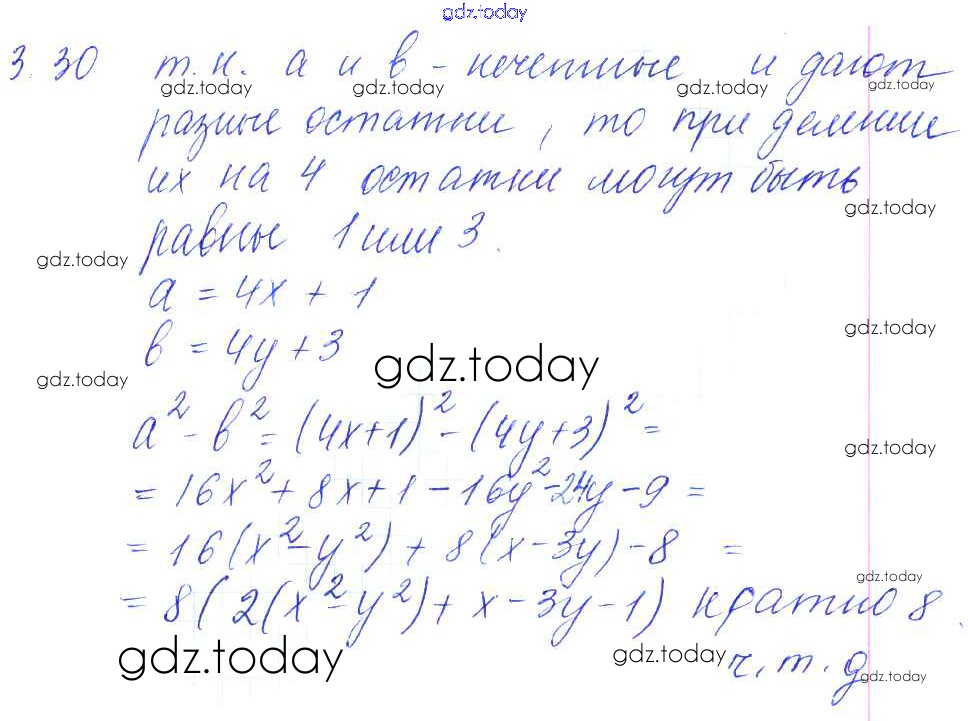 gdz.today
3.30 т.к. а и в - нечетные и дают
gdz.today gdz.today gdz.today gdz.today
разные остатки, то при делении
их на 4 остатки могут быть
gdz.today
равны 1 или 3.
gdz.today
a = 4x + 1
gdz.today
в = 4y + 3
gdz.today
gdz.today
a² - в² = (4x+1)² - (4y+3)² =
gdz.today
= 16x² + 8x + 1 - 16y² - 24y - 9 =
= 16(x² - y²) + 8(x - 3y) - 8 =
gdz.today
= 8(2(x² - y²) + x - 3y - 1) кратно 8.
gdz.today gdz.today
ч.т.д
gdz.today